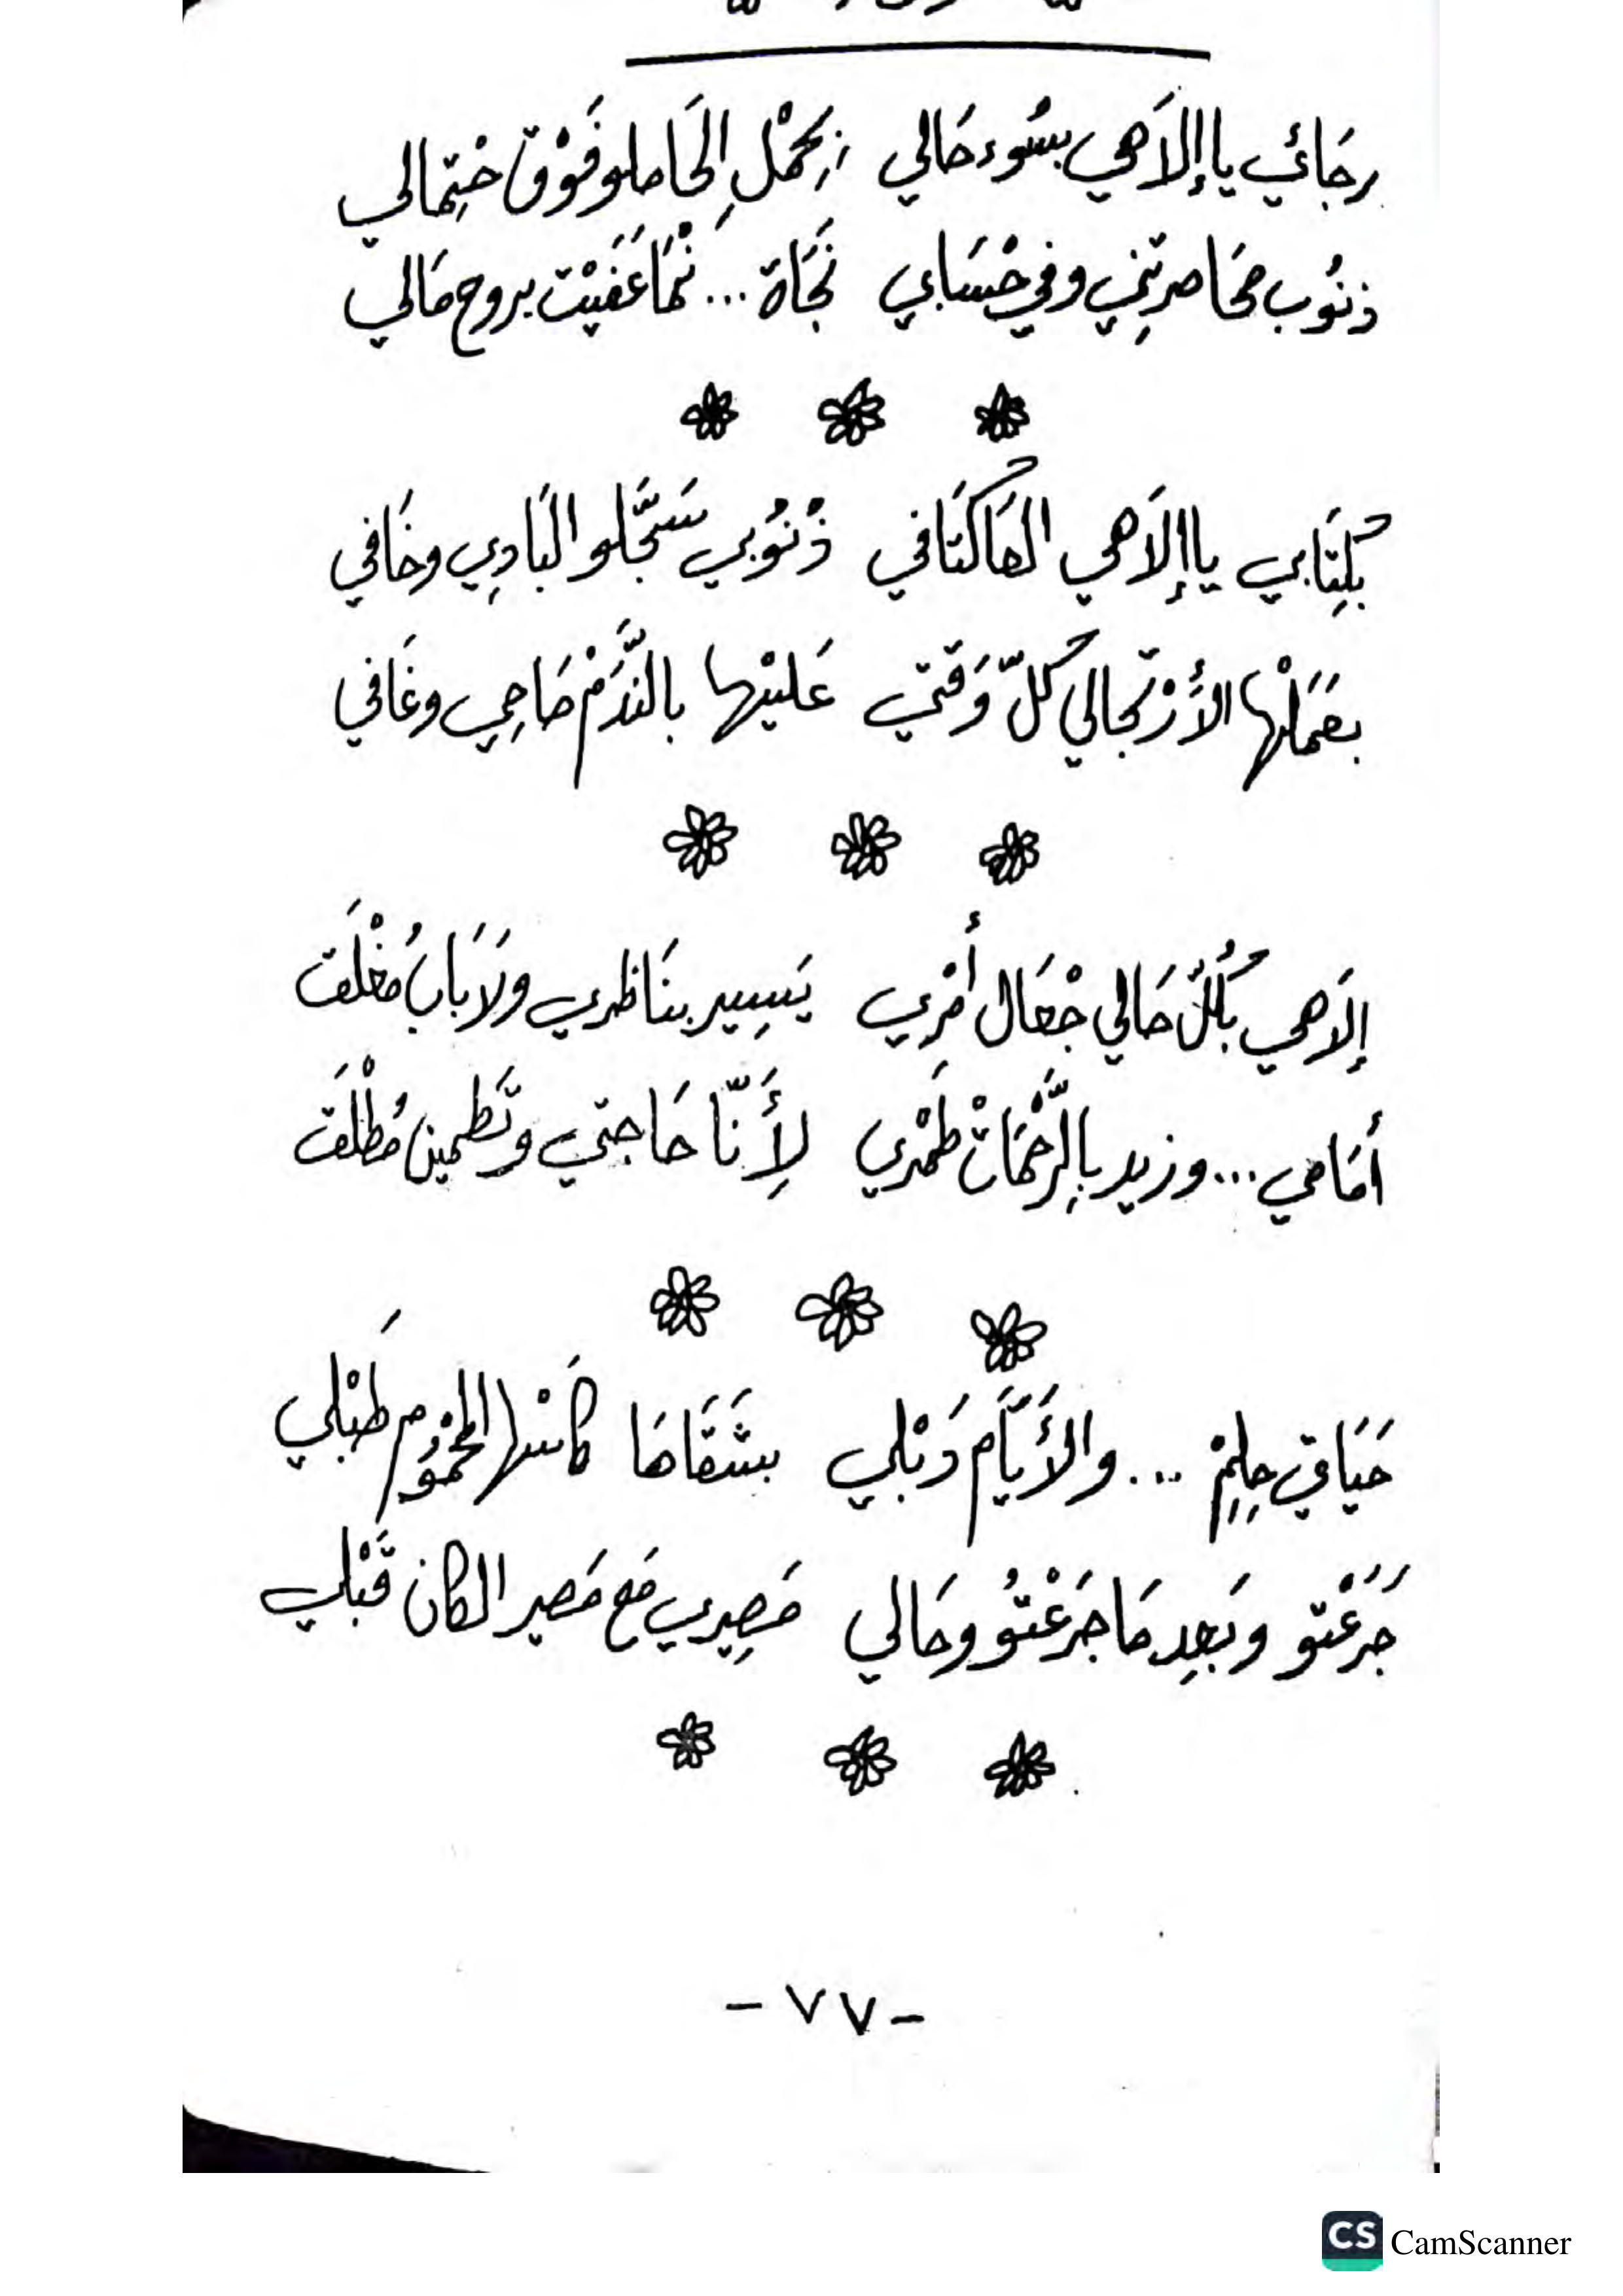 رجَائي يا إلاَهي بسُوء حَالي إزحِمْلِ الحَاملو فَوْق حْتِمالي
ذنوُب محَاصرتِني وفي حْسَابي نجَاة... نمَْا عَفَيْت بروح مَالي
بكْتِابي يا إلاَهي الهَاكتَافي ذْنوُبي سَجَّلو البَادِي وخَافي
بعَمَلْها الأرْتجالي كلّ وَقتي عَليْها بالنَّدَمْ صَاحِي وغَافي
إلاَهي بكُلّ حَالي جْعَال أمْري يَسِير بنَاظري ولاَ بَاب مُغْلَق
أمَامي... وزيد بِالرَّحْمَات طَمْري لِأَنّا حَاجتي وتَطمين مُطْلَق
حَيَاتي حِلِمْ ... والأَيَّام دَبْلي بشَقَاهَا كاسْها المحْمْوُم طَبْلي
جَرَعْتو وبَعِد مَا جَرَعْتوُ وحَالي مَصِيري مَع مَصير الكان قَبْلي
- ٧٧ -
CS CamScanner